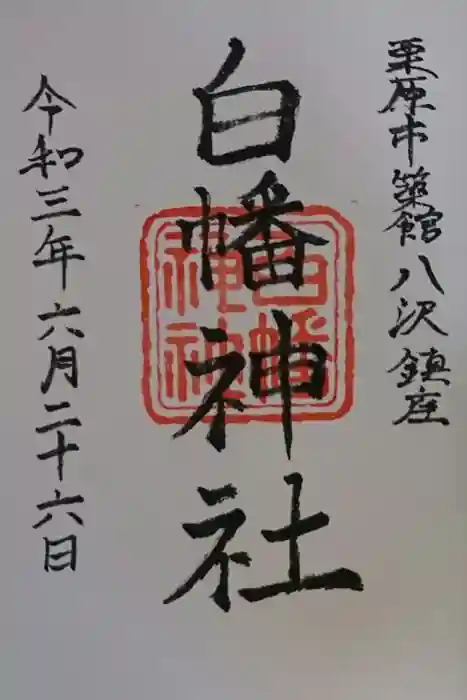 栗原市築館八沢鎮座
白幡神社
今和三年六月二十六日
白幡
神社